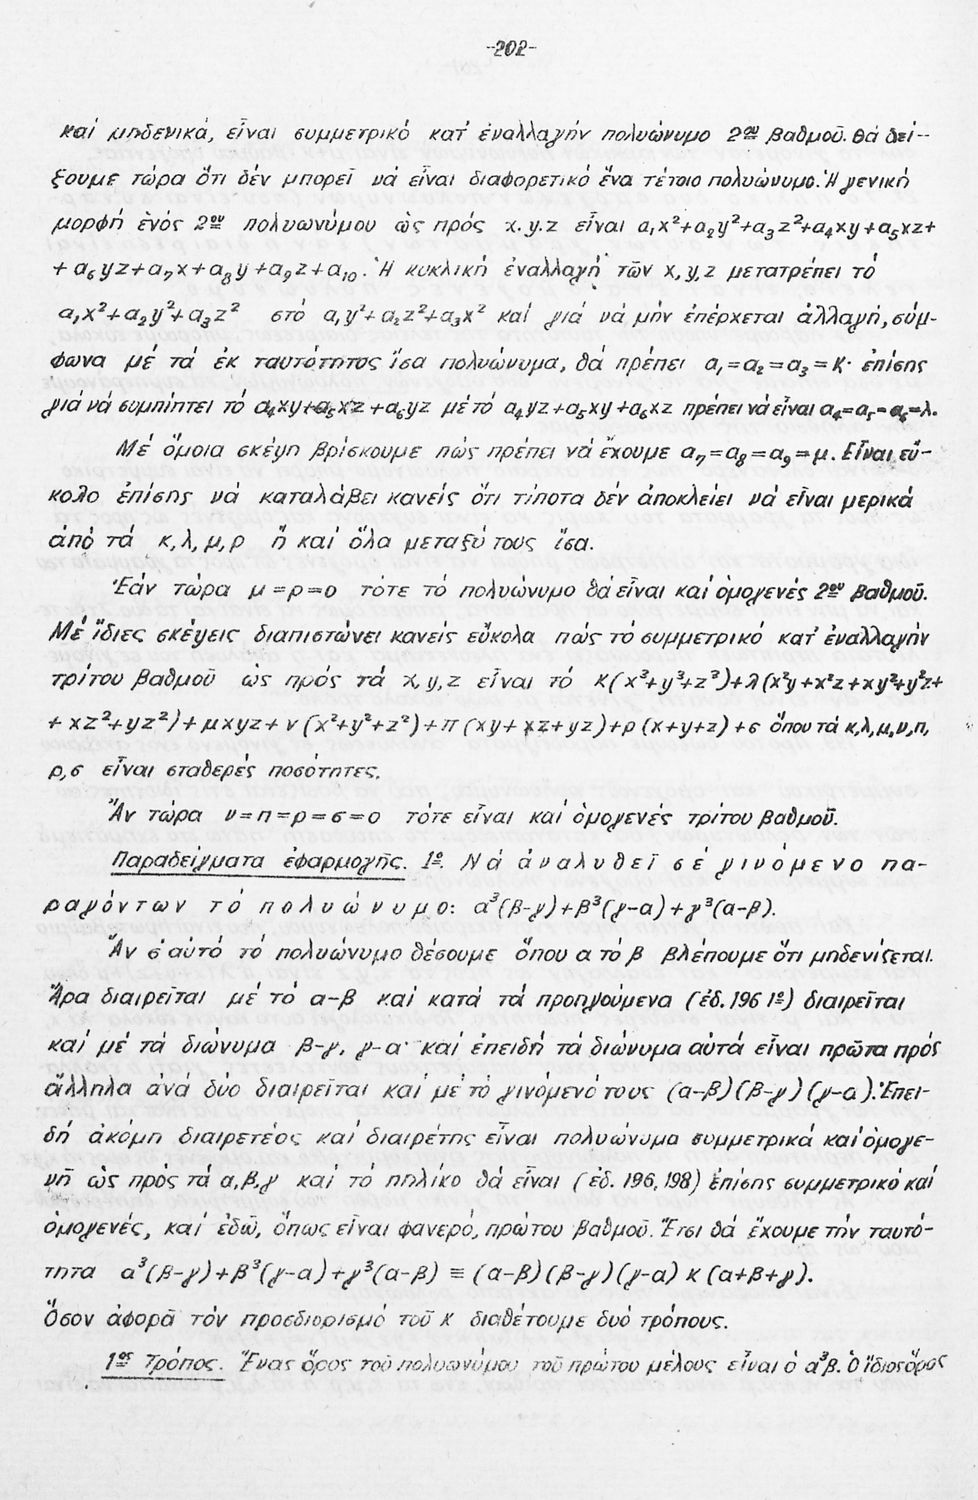 -202-
καί μηδενικά, εἶναι συμμετρικό κατ' ἐναλλαγήν πολυώνυμο 2ου βαθμοῦ. Θά δεί-
ξουμε τώρα ὅτι δέν μπορεῖ νά εἶναι διαφορετικό ἕνα τέτοιο πολυώνυμο. Ἡ γενική
μορφή ἑνός 2ου πολυωνύμου ὡς πρός x.y.z εἶναι α₁x²+α₂y²+α₃z²+α₄xy+α₅xz+
+α₆yz+α₇x+α₈y+α₉z+α₁₀. Ἡ κυκλική ἐναλλαγή τῶν x,y,z μετατρέπει τό
α₁x²+α₂y²+α₃z² στό α₁y²+α₂z²+α₃x² καί γιά νά μήν ἐπέρχεται ἀλλαγή, σύμ-
φωνα μέ τά ἐκ ταυτότητος ἴσα πολυώνυμα, θά πρέπει α₁=α₂=α₃=κ· ἐπίσης
γιά νά συμπίπτει τό α₄xy+α₅xz+α₆yz μέ τό α₄yz+α₅xy+α₆xz πρέπει νά εἶναι α₄=α₅=α₆=λ.
Μέ ὅμοια σκέψη βρίσκουμε πώς πρέπει νά ἔχουμε α₇=α₈=α₉=μ. Εἶναι εὔ-
κολο ἐπίσης νά καταλάβει κανείς ὅτι τίποτα δέν ἀποκλείει νά εἶναι μερικά
ἀπό τά κ,λ,μ,ρ ἤ καί ὅλα μεταξύ τους ἴσα.
Ἐάν τώρα μ=ρ=0 τότε τό πολυώνυμο θά εἶναι καί ὁμογενές 2ου βαθμοῦ.
Μέ ἴδιες σκέψεις διαπιστώνει κανείς εὔκολα πώς τό συμμετρικό κατ' ἐναλλαγήν
τρίτου βαθμοῦ ὡς πρός τά x,y,z εἶναι τό κ(x³+y³+z³)+λ(x²y+x²z+xy²+y²z+
+xz²+yz²)+μxyz+ν(x²+y²+z²)+π(xy+xz+yz)+ρ(x+y+z)+σ ὅπου τά κ,λ,μ,ν,π,
ρ,σ εἶναι σταθερές ποσότητες.
Ἄν τώρα ν=π=ρ=σ=0 τότε εἶναι καί ὁμογενές τρίτου βαθμοῦ.
Παραδείγματα ἐφαρμογῆς. 1ο. Νά ἀναλυθεῖ σέ γινόμενο πα-
ραγόντων τό πολυώνυμο: α³(β-γ)+β³(γ-α)+γ³(α-β).
Ἄν σ' αὐτό τό πολυώνυμο θέσουμε ὅπου α τό β βλέπουμε ὅτι μηδενίζεται.
Ἄρα διαιρεῖται μέ τό α-β καί κατά τά προηγούμενα (ἐδ. 196 1ο) διαιρεῖται
καί μέ τά διώνυμα β-γ, γ-α· καί ἐπειδή τά διώνυμα αὐτά εἶναι πρῶτα πρός
ἄλληλα ἀνά δύο διαιρεῖται καί μέ τό γινόμενό τους (α-β)(β-γ)(γ-α). Ἐπει-
δή ἀκόμη διαιρετέος καί διαιρέτης εἶναι πολυώνυμα συμμετρικά καί ὁμογε-
νῆ ὡς πρός τά α,β,γ καί τό πηλίκο θά εἶναι (ἐδ. 196, 198) ἐπίσης συμμετρικό καί
ὁμογενές, καί ἐδῶ, ὅπως εἶναι φανερό, πρώτου βαθμοῦ. Ἔτσι θά ἔχουμε τήν ταυτό-
τητα α³(β-γ)+β³(γ-α)+γ³(α-β) ≡ (α-β)(β-γ)(γ-α) κ(α+β+γ).
Ὅσον ἀφορᾶ τόν προσδιορισμό τοῦ κ διαθέτουμε δυό τρόπους.
1ος Τρόπος. Ἕνας ὅρος τοῦ πολυωνύμου τοῦ πρώτου μέλους εἶναι ὁ α³β. Ὁ ἴδιος ὅρος